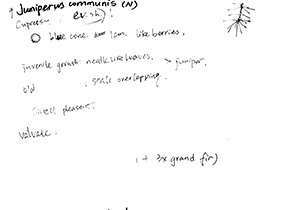 9 Juniperus communis (N)
Cupress (ev.sh).
blue cone. 1cm. like berries.
juvenile growth: needle like leaves. > juniper.
old : scale overlapping.
Smell pleasent.
valvate.
1 + 3x grand fir)